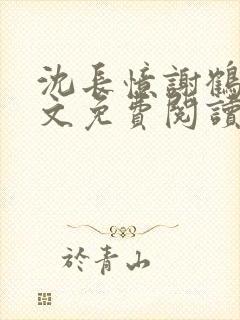 沈長憶謝鶴
文免費閱讀
於青山